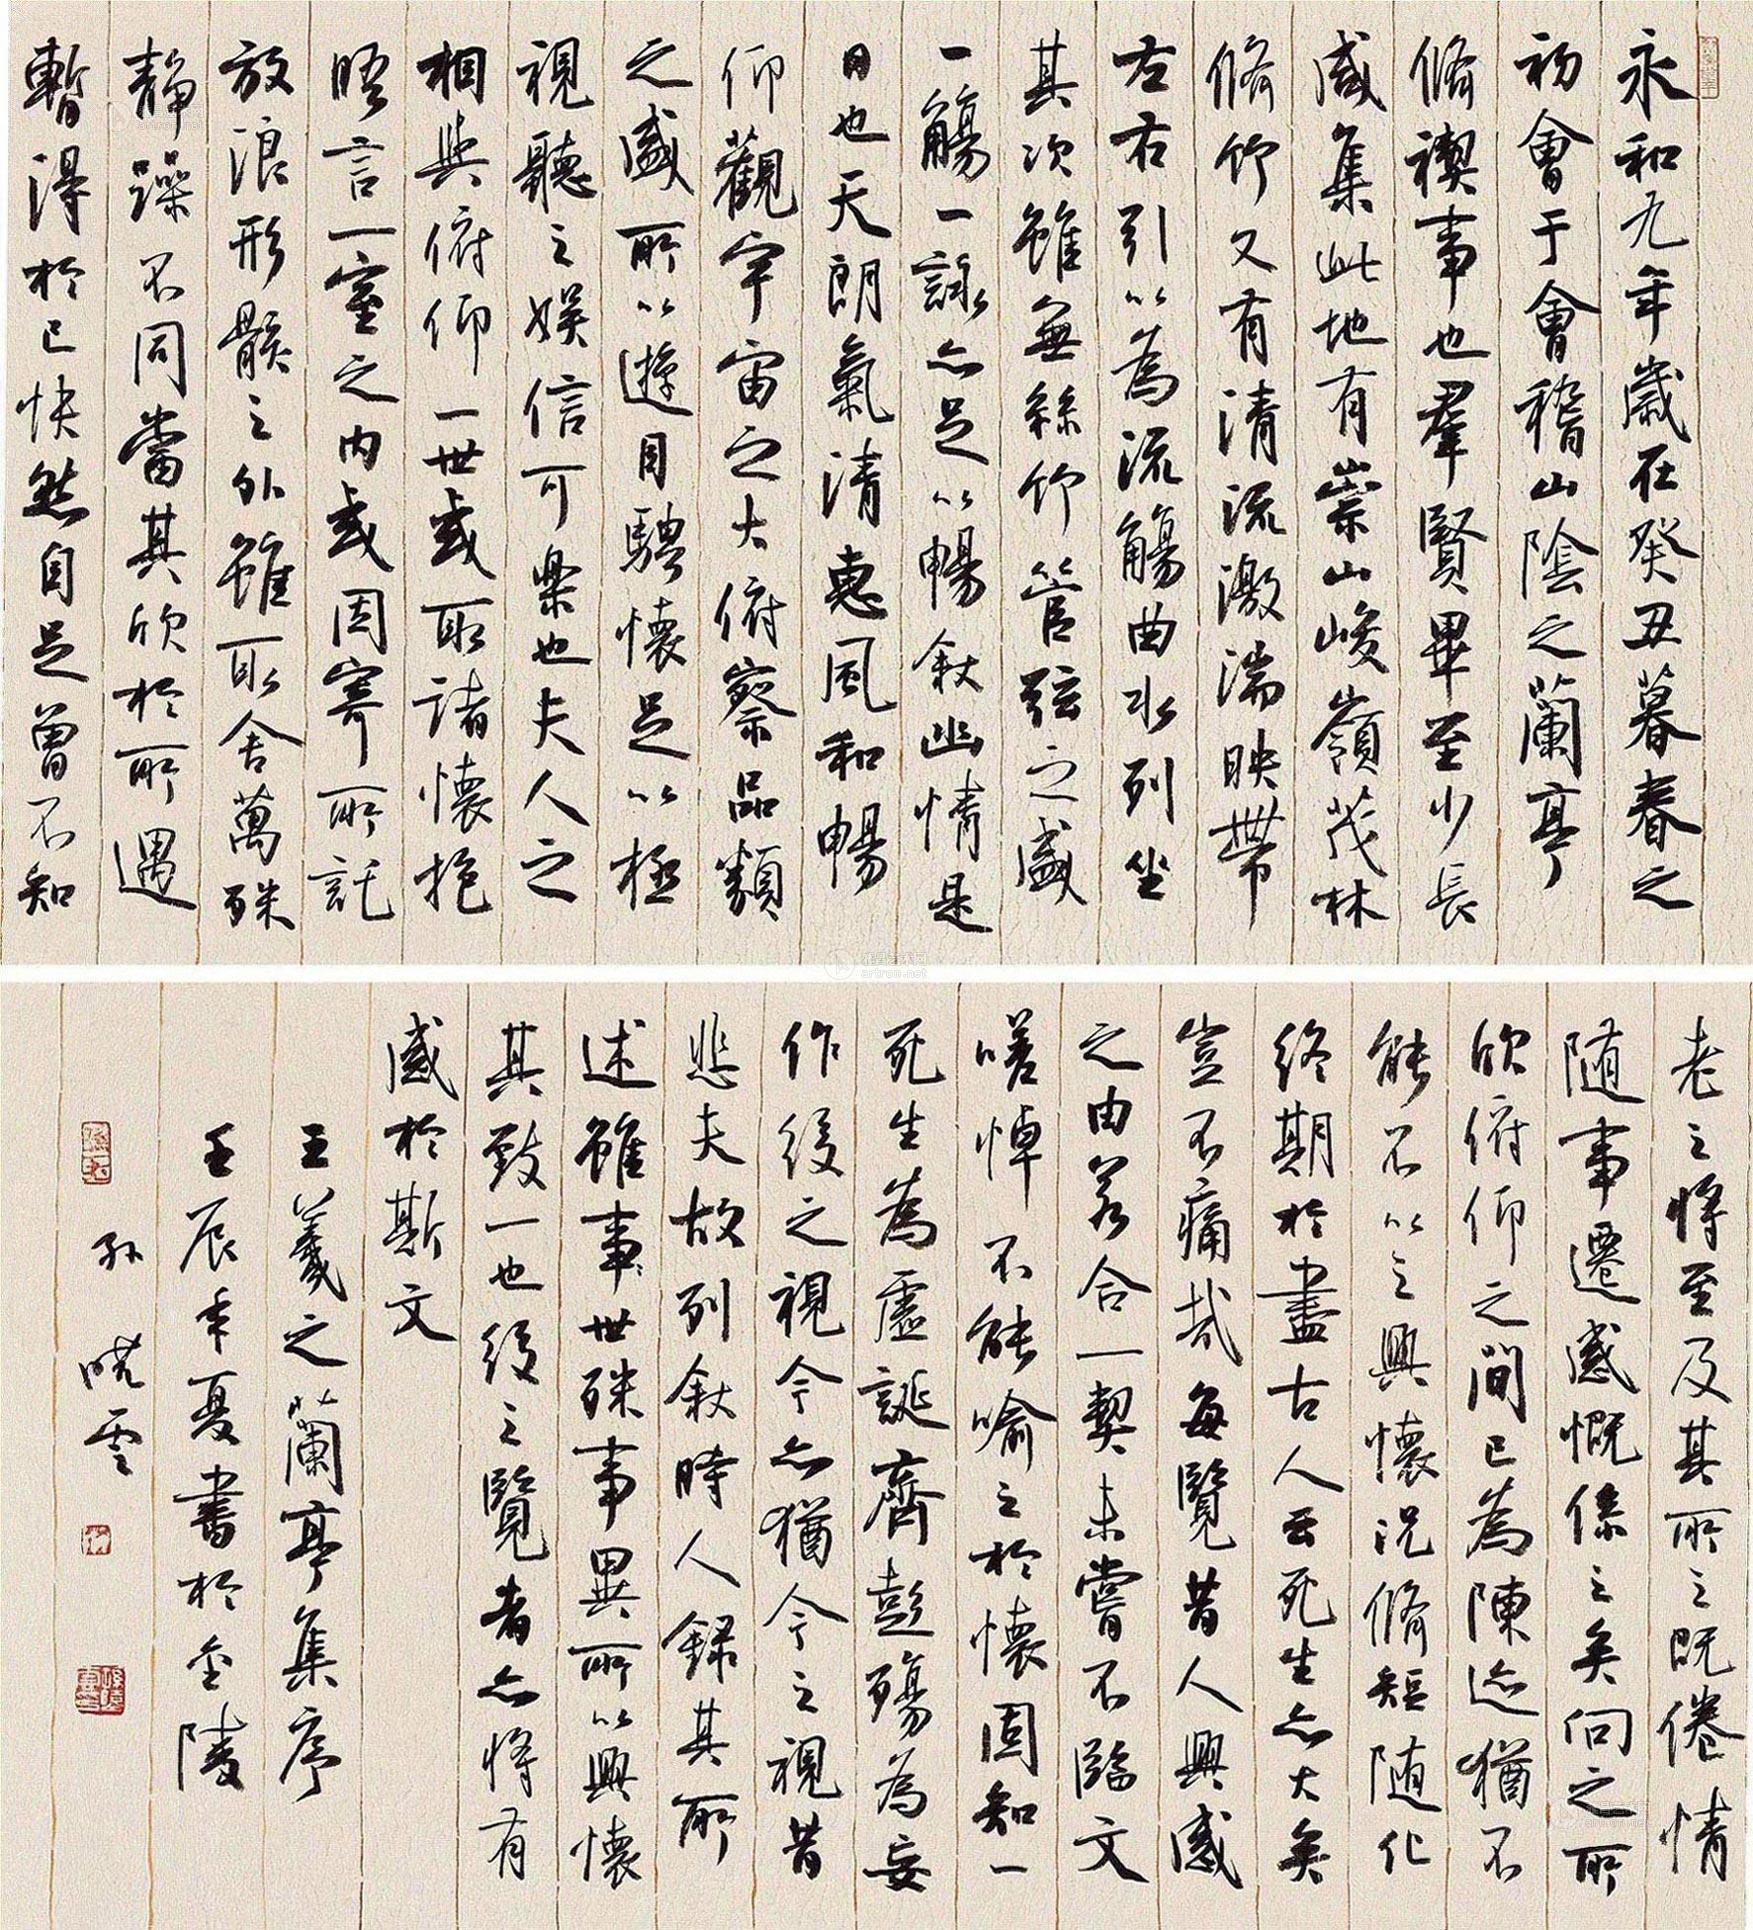 永和九年歲在癸丑暮春之
初會于會稽山陰之蘭亭
脩禊事也羣賢畢至少長
咸集此地有崇山峻嶺茂林
脩竹又有清流激湍映帶
左右引以為流觴曲水列坐
其次雖無絲竹管弦之盛
一觴一詠亦足以暢敘幽情是
日也天朗氣清惠風和暢
仰觀宇宙之大俯察品類
之盛所以遊目騁懷足以極
視聽之娛信可樂也夫人之
相與俯仰一世或取諸懷抱
晤言一室之內或因寄所託
放浪形骸之外雖取舍萬殊
靜躁不同當其欣於所遇
暫得於己快然自足曾不知
老之將至及其所之既倦情
随事遷感慨係之矣向之所
欣俯仰之間已為陳迹猶不
能不以之興懷況脩短随化
終期於盡古人云死生亦大矣
豈不痛哉每覽昔人興感
之由若合一契未嘗不臨文
嗟悼不能喻之於懷固知一
死生為虛誕齊彭殤為妄
作後之視今亦猶今之視昔
悲夫故列敘時人錄其所
述雖事世殊事異所以興懷
其致一也後之覽者亦將有
感於斯文
王羲之蘭亭集序
壬辰年夏書於金陵
孫曉雲